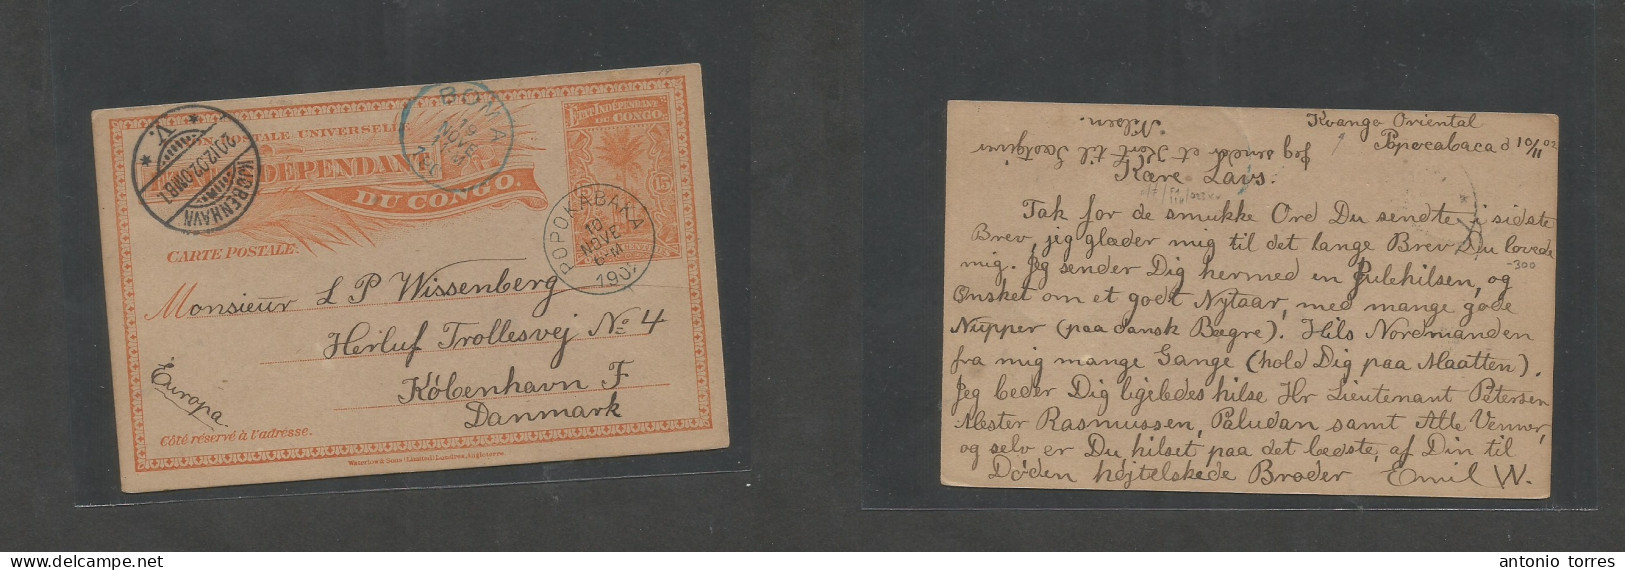 UNION POSTALE UNIVERSELLE
INDEPENDANT
DU CONGO.
CARTE POSTALE:
ETAT INDÉPENDANT
DU CONGO.
15
CENTIMES
KJØBENHAVN
V.
BOMA
19
NOVE
POPOKABAKA
10
NOVE
1902
Monsieur L P Wissenberg
Herluf Trollesvej No 4
København F
Danmark
Europa.
Côté réservé à l'adresse.
Waterlow & Sons Limited, Londres, Angleterre.
Kvango Oriental
Popocabaca d 10/11 02
Jeg sender et Kort til Leutgin
Nilsen.
Kære Lavs.
Tak for de smukke Ord Du sendte i sidste
Brev, jeg glæder mig til det lange Brev Du lovede
-300
mig. Jeg sender Dig hermed en Julehilsen, og
Ønsket om et godt Nytaar, med mange gode
Nupper (paa dansk Bægre). Hils Nordmanden
fra mig mange Gange (hold Dig paa Maatten).
Jeg beder Dig ligeledes hilse Hr Lieutenant Petersen
Mester Rasmussen, Paludan samt Alle Venner,
og selv er Du hilset paa det bedste, af Din til
Døden højtelskede Broder Emil W.
antonio torres